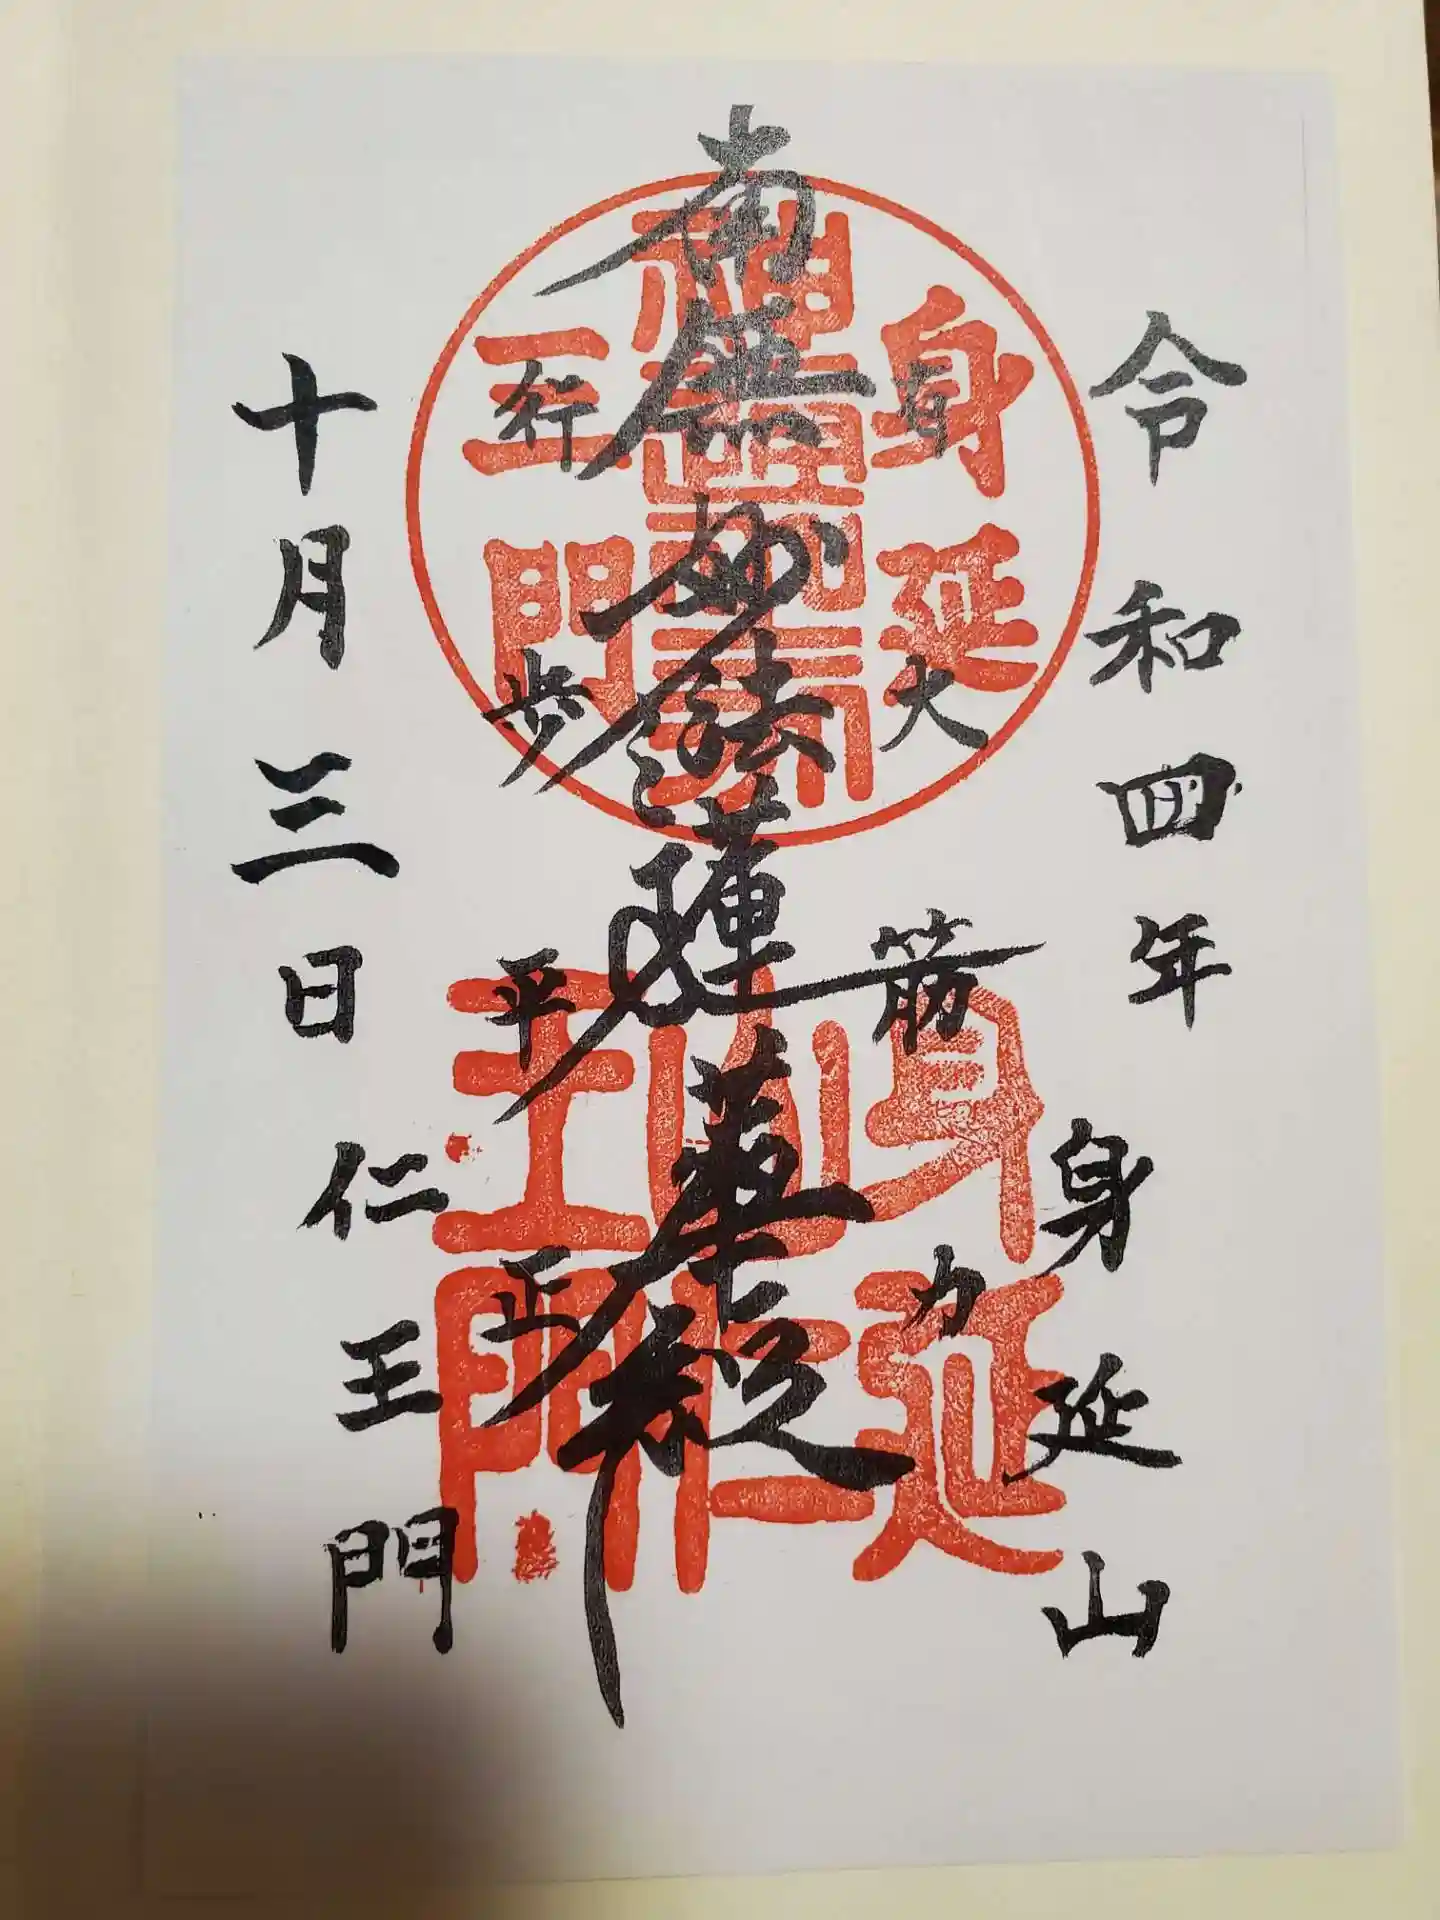 令和四年 身延山
有大筋力
南無妙法蓮華経
行歩平正
十月三日 仁王門
身延
三門
身延
山仁
王門